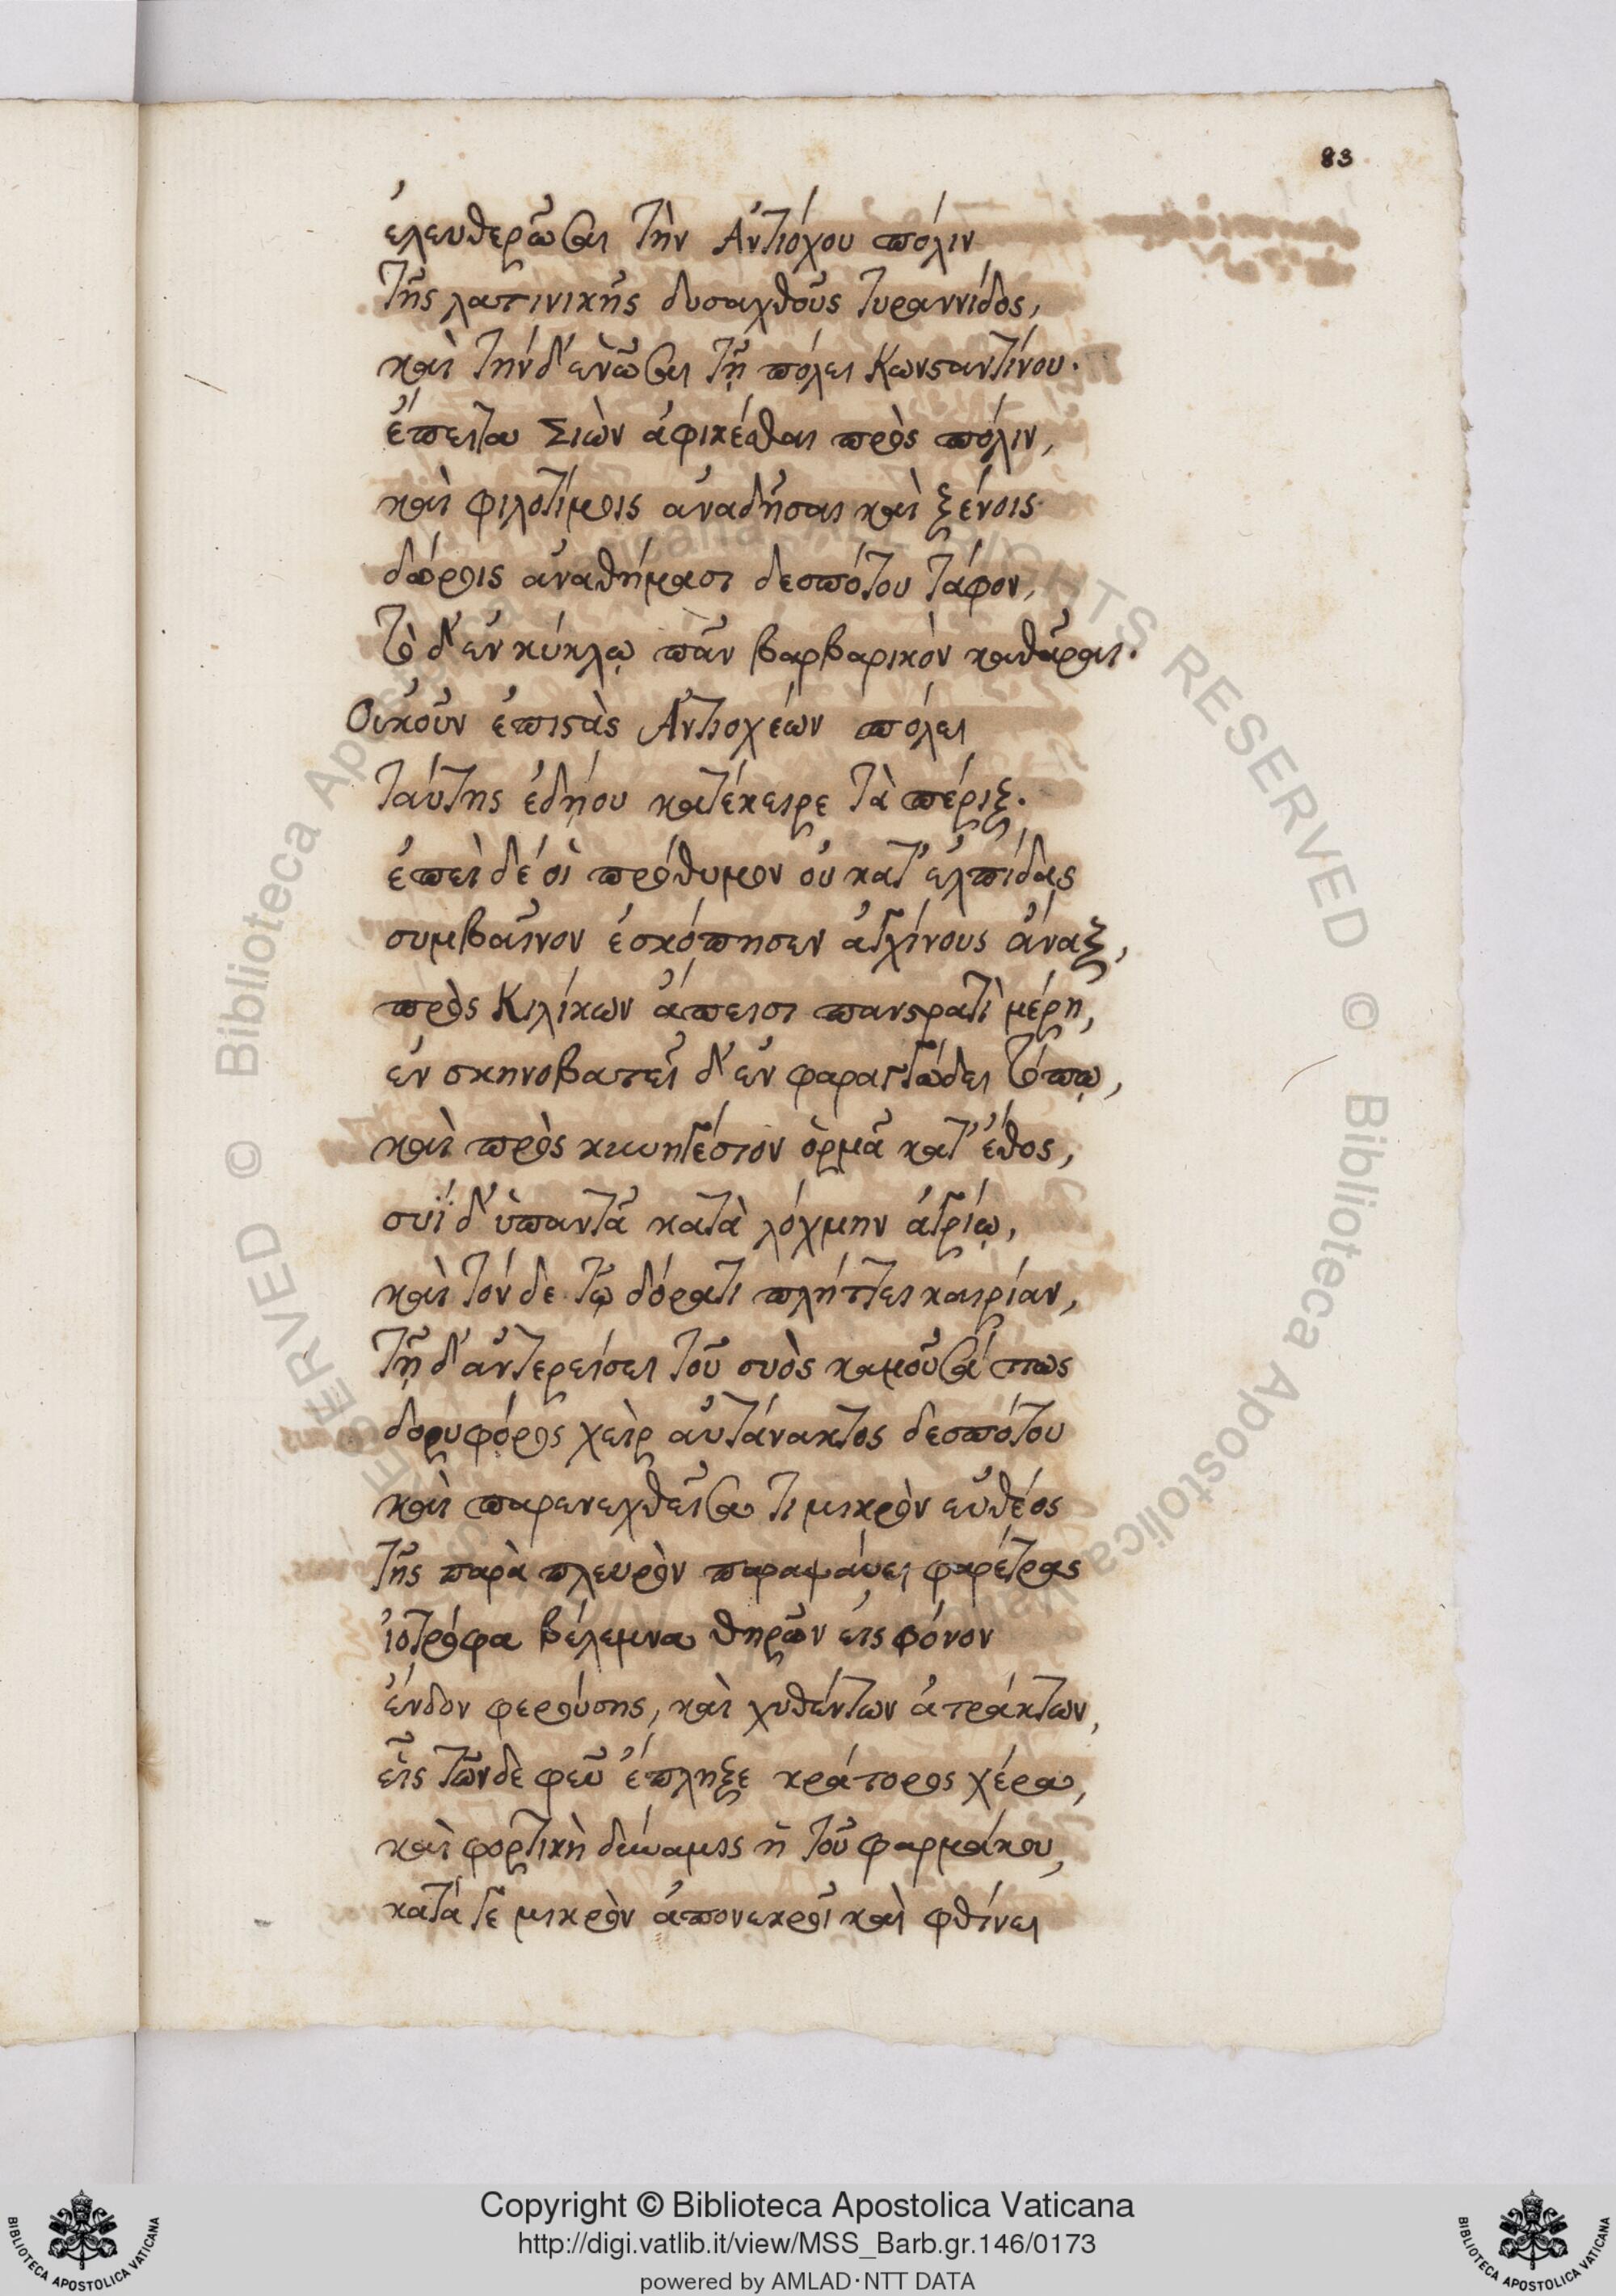 83
ἐλευθερῶσαι τὴν Ἀντιόχου πόλιν
τῆς λατινικῆς δυσαχθοῦς τυραννίδος,
καὶ τήνδ' ἑνῶσαι τῇ πόλει Κωνσταντίνου.
ἔπειτα Σιὼν ἀφικέσθαι πρὸς πόλιν,
καὶ φιλοτίμοις ἀναδῆσαι καὶ ξένοις
δώροις ἀναθήμασι δεσπότου τάφον,
τὸ δ' ἐν κύκλῳ πᾶν βαρβαρικὸν καθᾶραι.
Οὐκοῦν ἐπιστὰς Ἀντιοχέων πόλει
ταύτης ἐδῄου κατέκειρε τὰ πέριξ.
ἐπεὶ δέ οἱ πρόθυμον οὐ κατ' ἐλπίδας
συμβαῖνον ἐσκόπησεν ἀγχίνους ἄναξ,
πρὸς Κιλίκων ἄπεισι πανστρατὶ μέρη,
ἐν σκηνοβατεῖ δ' ἐν φαραγγώδει τόπῳ,
καὶ πρὸς κυνηγέσιον ὁρμᾷ κατ' ἔθος,
συῒ δ' ὑπαντᾷ κατὰ λόχμην ἀγρίῳ,
καὶ τόνδε τῷ δόρατι πλήττει καιρίαν,
τῇ δ' ἀντερείσει τοῦ συὸς καμοῦσά πως
δορυφόρος χεὶρ αὐτάνακτος δεσπότου
καὶ παρενεχθεῖσα τι μικρὸν εὐθέος
τῆς παρὰ πλευρὸν παραψαύει φαρέτρας
ἰοτρόφα βέλεμνα θηρῶν εἰς φόνον
ἔνδον φερούσης, καὶ χυθέντων ἀτράκτων,
εἷς τῶνδε φεῦ ἔπληξε κράτορος χέρα,
καὶ φορτικὴ δύναμις ἡ τοῦ φαρμάκου,
κατά γε μικρὸν ἀπονεκροῖ καὶ φθίνει
© Biblioteca Apostolica Vaticana ALL RIGHTS RESERVED © Biblioteca Apostolica Vaticana
Copyright © Biblioteca Apostolica Vaticana
http://digi.vatlib.it/view/MSS_Barb.gr.146/0173
powered by AMLAD·NTT DATA
BIBLIOTECA APOSTOLICA VATICANA
BIBLIOTECA APOSTOLICA VATICANA